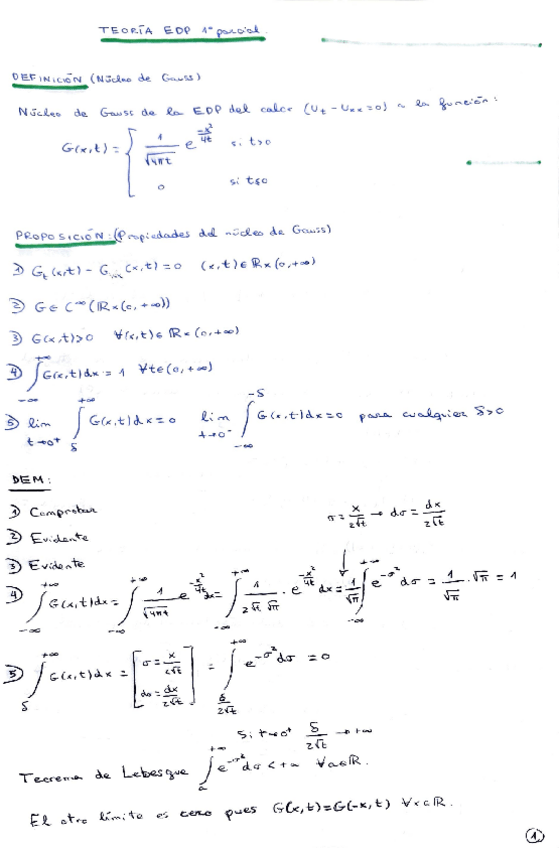 TEORÍA EDP 1er parcial.
DEFINICIÓN (Núcleo de Gauss)
Núcleo de Gauss de la EDP del calor (Ut - Uxx = 0) ~ la función:
G(x,t) = { 1/√4πt e^(-x²/4t) si t>0
0 si t≤0
PROPOSICIÓN: (Propiedades del núcleo de Gauss)
1) Gt(x,t) - Gxx(x,t) = 0 (x,t) ∈ ℝ×(0,+∞)
2) G ∈ C^∞(ℝ×(0,+∞))
3) G(x,t)>0 ∀(x,t) ∈ ℝ×(0,+∞)
4) ∫_{-∞}^{+∞} G(x,t)dx = 1 ∀t∈(0,+∞)
5) lim_{t→0⁺} ∫_δ^{+∞} G(x,t)dx = 0 lim_{t→0⁻} ∫_{-∞}^{-δ} G(x,t)dx = 0 para cualquier δ>0
DEM:
1) Comprobar
σ = x/2√t → dσ = dx/2√t
2) Evidente
3) Evidente
4) ∫_{-∞}^{+∞} G(x,t)dx = ∫_{-∞}^{+∞} 1/√4πt e^(-x²/4t) dx = ∫_{-∞}^{+∞} 1/(2√t √π) · e^(-x²/4t) dx = 1/√π ∫_{-∞}^{+∞} e^(-σ²) dσ = 1/√π · √π = 1
5) ∫_δ^{+∞} G(x,t)dx = [σ = x/2√t dσ = dx/2√t] = ∫_{δ/2√t}^{+∞} e^(-σ²) dσ = 0
Si t→0⁺ δ/2√t → +∞
Teorema de Lebesgue ∫_a^{+∞} e^(-σ²) dσ < +∞ ∀a∈ℝ.
El otro límite es cero pues G(x,t)=G(-x,t) ∀x∈ℝ.
1